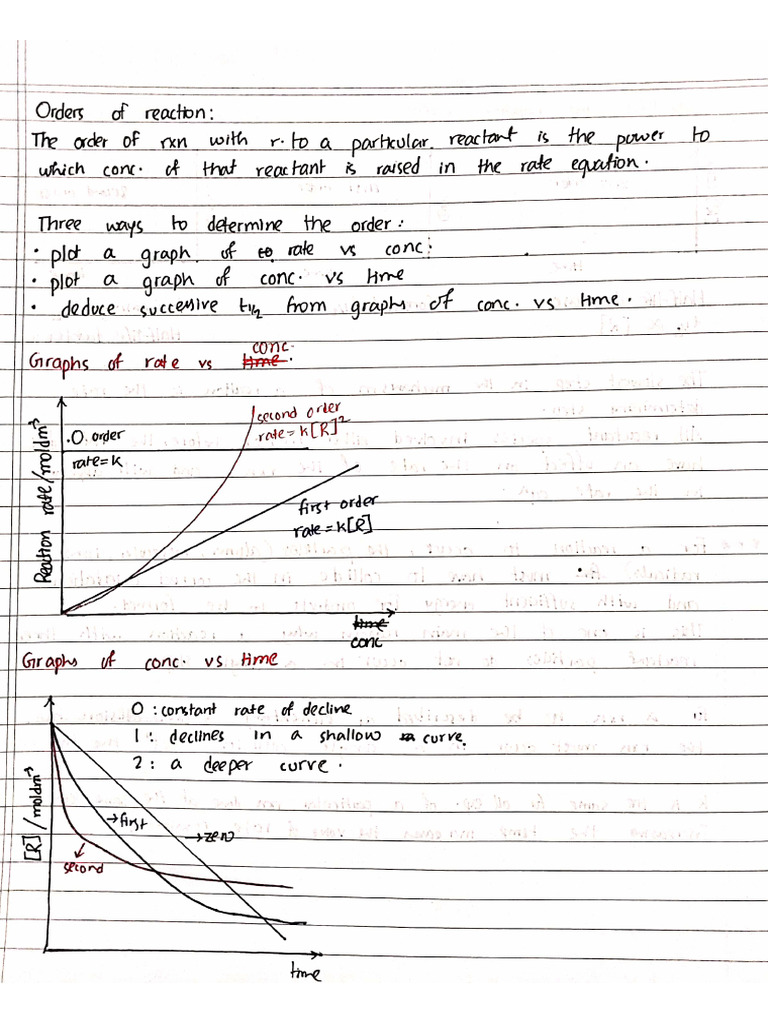 Orders of reaction:
The order of rxn with r. to a particular reactant is the power to
which conc. of that reactant is raised in the rate equation.
Three ways to determine the order:
• plot a graph of rate vs conc.
• plot a graph of conc. vs time
• deduce successive t1/2 from graphs of conc. vs time.
Graphs of rate vs time conc.
Reaction rate/moldm-3
0. order
rate=k
second order
rate=k[R]2
first order
rate=k[R]
time
conc
Graphs of conc. vs time
0 : constant rate of decline
1 : declines in a shallow curve.
2 : a deeper curve.
[R]/moldm-3
→first
→zero
second
time